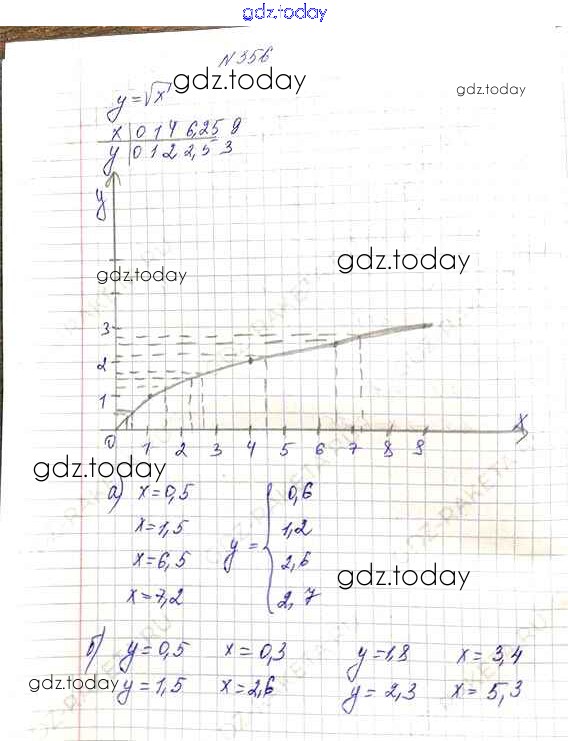 gdz.today
N 356
gdz.today
gdz.today
y=√x
x | 0 1 4 6,25 9
y | 0 1 2 2,5 3
y
gdz.today
gdz.today
3
2
1
0 1 2 3 4 5 6 7 8 9
x
gdz.today
а) x=0,5
x=1,5
x=6,5
x=7,2
y = { 0,6
1,2
2,6
2,7
gdz.today
б) y=0,5 x=0,3 y=1,8 x=3,4
gdz.today
y=1,5 x=2,6 y=2,3 x=5,3